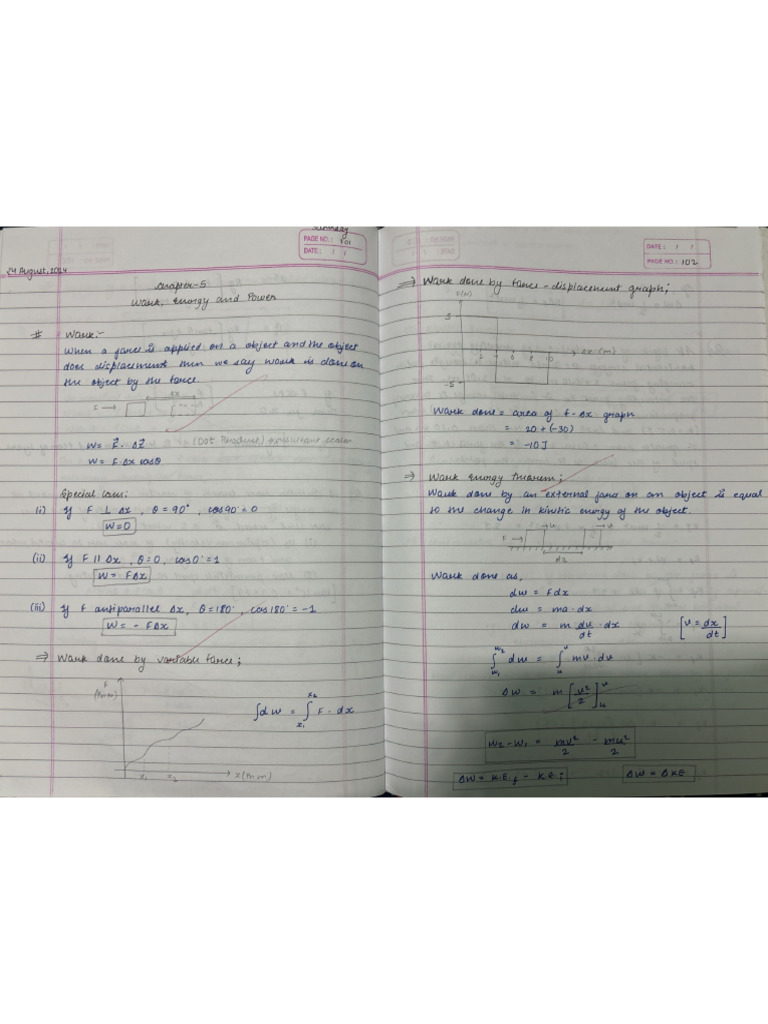 Sunday
PAGE NO.: 101
DATE: / /
24 August, 2024
Chapter-5
Work, Energy and Power
# Work:-
When a force is applied on a object and the object
does displacement then we say work is done on
the object by the force.
Δx
F →
W = F⃗ . Δx⃗ (Dot Product)
W = F.Δx cosθ
Special Case:
(i) If F ⊥ Δx, θ = 90°, cos90° = 0
W=0
(ii) If F || Δx, θ=0, cos0°=1
W = FΔx
(iii) If F antiparallel Δx, θ=180°, cos180° = -1
W = - FΔx
⇒ Work done by variable force;
F
x₁ x₂ x(m)
∫dW = ∫ₓ₁ˣ² F . dx
DATE: / /
PAGE NO.: 102
⇒ Work done by force-displacement graph;
F(N)
5
Δx (m)
6 10
-5
Work done = area of F-Δx graph
= 20 + (-30)
= -10 J
⇒ Work energy theorem;
Work done by an external force on an object is equal
to the change in kinetic energy of the object.
F → →u →v
Work done as,
dW = Fdx
dW = ma.dx
dW = m dv/dt . dx [v = dx/dt]
∫w₁ʷ² dW = ∫ᵤᵛ mv.dv
ΔW = m[v²/2]ᵤᵛ
W₂-W₁ = mv²/2 - mu²/2
ΔW = K.E.f - K.E.i ΔW = ΔKE